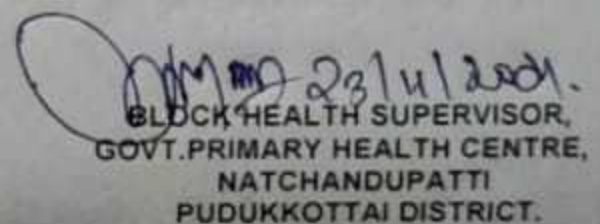 23/11/2021.
BLOCK HEALTH SUPERVISOR,
GOVT.PRIMARY HEALTH CENTRE,
NATCHANDUPATTI
PUDUKKOTTAI DISTRICT.